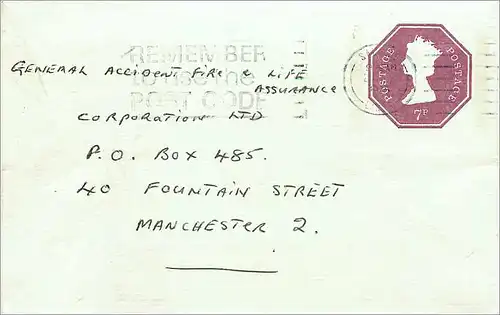 REMEMBER
to use the
POST CODE
POSTAGE POSTAGE
7P
GENERAL ACCIDENT FIRE & LIFE
ASSURANCE
CORPORATION LTD
P.O. BOX 485.
40 FOUNTAIN STREET
MANCHESTER 2.